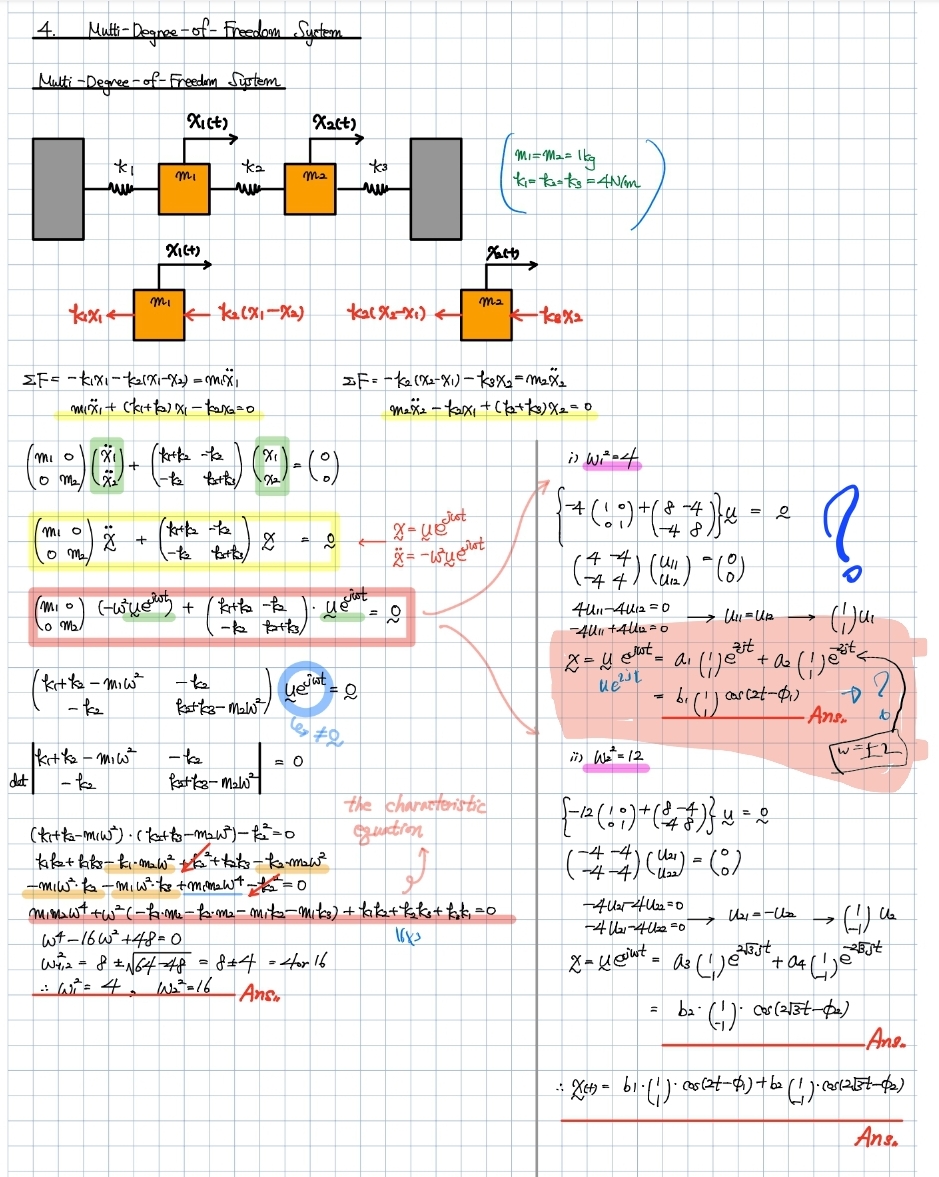 4. Multi-Degree-of-Freedom System
Multi-Degree-of-Freedom System
x₁(t) x₂(t)
k₁ m₁ k₂ m₂ k₃
m₁=m₂=1kg
k₁=k₂=k₃=4N/m
x₁(t) x₂(t)
k₁x₁ m₁ k₂(x₁-x₂) k₂(x₂-x₁) m₂ k₃x₂
ΣF = -k₁x₁-k₂(x₁-x₂) = m₁ẍ₁
m₁ẍ₁+(k₁+k₂)x₁-k₂x₂=0
ΣF = -k₂(x₂-x₁)-k₃x₂=m₂ẍ₂
m₂ẍ₂-k₂x₁+(k₂+k₃)x₂=0
(m₁ 0; 0 m₂)(ẍ₁; ẍ₂) + (k₁+k₂ -k₂; -k₂ k₂+k₃)(x₁; x₂) = (0; 0)
(m₁ 0; 0 m₂) ẍ + (k₁+k₂ -k₂; -k₂ k₂+k₃) x = 0 ← x = ue^jωt
ẍ = -ω²ue^jωt
(m₁ 0; 0 m₂)(-ω²ue^jωt) + (k₁+k₂ -k₂; -k₂ k₂+k₃)·ue^jωt = 0
(k₁+k₂-m₁ω² -k₂; -k₂ k₂+k₃-m₂ω²) ue^jωt = 0
↳ ≠0
det |k₁+k₂-m₁ω² -k₂; -k₂ k₂+k₃-m₂ω²| = 0
the characteristic
equation
(k₁+k₂-m₁ω²)·(k₂+k₃-m₂ω²)-k₂²=0
k₁k₂+k₁k₃-k₁·m₂ω²+k₂²+k₂k₃-k₂·m₂ω²
-m₁ω²·k₂-m₁ω²·k₃+m₁m₂ω⁴-k₂²=0
m₁m₂ω⁴+ω²(-k₁·m₂-k₂·m₂-m₁k₂-m₁k₃)+k₁k₂+k₂k₃+k₃k₁=0
16×3
ω⁴-16ω²+48=0
ω²₁,₂ = 8±√64-48 = 8±4 = 4 or 16
∴ ω₁² = 4, ω₂²=16 Ans.
i) ω₁²=4
{-4(1 0; 0 1)+(8 -4; -4 8)}u = 0
?
(4 -4; -4 4)(u₁₁; u₁₂) = (0; 0)
4u₁₁-4u₁₂=0
-4u₁₁+4u₁₂=0 → u₁₁=u₁₂ → (1; 1)u₁
x = u e^jωt = a₁(1; 1)e^2jt + a₂(1; 1)e^-2jt
ue^2jt
= b₁(1; 1)cos(2t-φ₁) → ?
Ans.
ω=±2
ii) ω₂²=12
{-12(1 0; 0 1)+(8 -4; -4 8)}u = 0
(-4 -4; -4 -4)(u₂₁; u₂₂) = (0; 0)
-4u₂₁-4u₂₂=0
-4u₂₁-4u₂₂=0 → u₂₁=-u₂₂ → (1; -1)u₂
x = ue^jωt = a₃(1; -1)e^2√3jt + a₄(1; -1)e^-2√3jt
= b₂·(1; -1)·cos(2√3t-φ₂)
Ans.
∴ x(t) = b₁·(1; 1)·cos(2t-φ₁)+b₂(1; -1)·cos(2√3t-φ₂)
Ans.